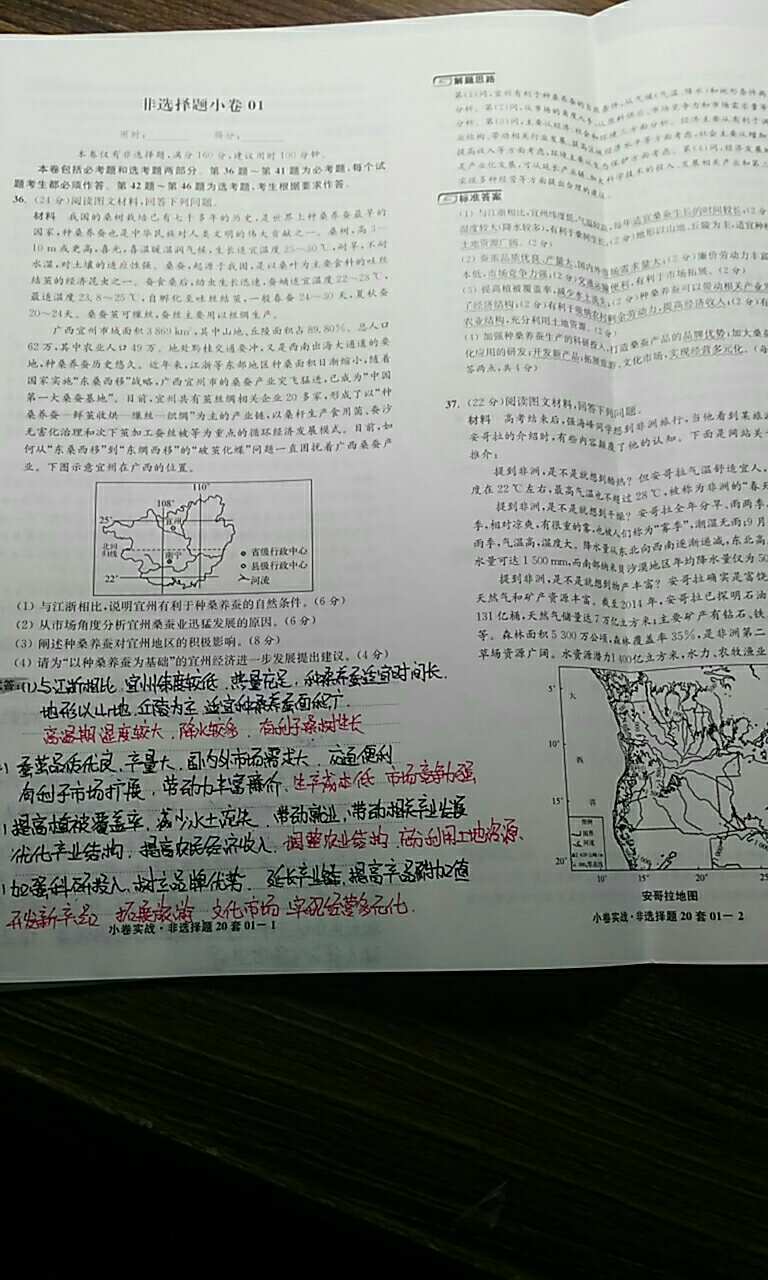 非选择题小卷 01
用时: 得分:
本卷仅有非选择题,满分160分,建议用时100分钟。
本卷包括必考题和选考题两部分。第36题~第41题为必考题,每个试
题考生都必须作答。第42题~第46题为选考题,考生根据要求作答。
36. (24分)阅读图文材料,回答下列问题。
材料 我国的桑树栽培已有七千多年的历史,是世界上种桑养蚕最早的
国家,种桑养蚕也是中华民族对人类文明的伟大贡献之一。桑树,高3~
10 m或更高,喜光,喜温暖湿润气候,生长适宜温度25~30℃,耐旱,不耐
水湿,对土壤的适应性强。桑蚕,起源于我国,是以桑叶为主要食料的吐丝
结茧的经济昆虫之一。蚕食桑后,幼虫生长迅速,蚕蛹适宜温度22~28℃,
最适温度23.8~25℃,自孵化至吐丝结茧,一般春蚕24~30天,夏秋蚕
20~24天。桑蚕茧可缫丝,蚕丝主要用以丝绸生产。
广西宜州市域面积3 869 km²,其中山地、丘陵面积占89.80%。总人口
62万,其中农业人口49万。地处黔桂交通要冲,又是西南出海大通道的要
地,种桑养蚕历史悠久。近年来,江浙等东部地区种桑面积日渐缩小,随着
国家实施“东桑西移”战略,广西宜州市的桑蚕产业突飞猛进,已成为“中国
第一大桑蚕基地”。目前,宜州共有茧丝绸相关企业20多家,形成了以“种
桑养蚕—鲜茧收烘—缫丝—织绸”为主的产业链,以桑杆生产食用菌、蚕沙
无害化治理和次下茧加工蚕丝被等为重点的循环经济发展模式。目前,如
何从“东桑西移”到“东绸西移”的“破茧化蝶”问题一直困扰着广西桑蚕产
业。下图示意宜州在广西的位置。
110°
108°
25°
宜州
北回
归线
南宁
22°
省级行政中心
县级行政中心
河流
(1) 与江浙相比,说明宜州有利于种桑养蚕的自然条件。(6分)
(2) 从市场角度分析宜州桑蚕业迅猛发展的原因。(6分)
(3) 阐述种桑养蚕对宜州地区的积极影响。(8分)
(4) 请为“以种桑养蚕为基础”的宜州经济进一步发展提出建议。(4分)
答:(1)与江浙相比,宜州纬度较低,热量充足,种桑养蚕适宜时间长.
地形以山地,丘陵为主,适宜种桑养蚕面积广.
高温期湿度较大,降水较多,有利于桑树生长
蚕茧品质优良,产量大,国内外市场需求大,交通便利
有利于市场扩展,劳动力丰富廉价,生产成本低 市场竞争力强
提高植被覆盖率,减少水土流失,带动就业,带动相关产业发展
优化产业结构,提高农民经济收入,调整农业结构,充分利用土地资源.
加强科研投入,树立品牌优势,延长产业链,提高产品附加值
开发新产品 拓展旅游,文化市场 实现经营多元化.
小卷实战·非选择题 20套 01— 1
解题思路
第(1)问,宜州有利于种桑养蚕的自然条件,从气候(气温、降水)和地形条件两
分析。第(2)问,从市场的角度入手,从原料供应、市场竞争力和市场需求量等
分析。第(3)问,主要从经济、社会和环境三方面分析。经济主要从有利于调
业结构、带动相关行业发展、提高区域经济水平等方面考虑,社会主要从增加
提高收入等方面考虑,环境主要从生态保护方面考虑。第(4)问,经济发展
是产业化发展,可从延长产业链、加大科学技术的投入、发展相关产业和第三
实现多种经营等方面提出合理的建议。
标准答案
(1) 与江浙相比,宜州纬度低,气温较高,每年适宜桑蚕生长的时间较长;(2分
湿度较大(降水较多),有利于桑树生长;(2分)地形以山地、丘陵为主,适宜种植
土地资源广阔。(2分)
(2) 蚕茧品质优良、产量大,国内外市场需求量大;(2分)廉价劳动力丰富
本低,市场竞争力强;(2分)交通运输便利,有利于市场拓展。(2分)
(3) 提高植被覆盖率,减少水土流失;(2分)种桑养蚕可以带动相关产业发
了经济结构;(2分)有利于吸纳农村剩余劳动力,提高经济收入;(2分)有
农业结构,充分利用土地资源。(2分)
(4) 加强种桑养蚕生产的科研投入,打造桑蚕产品的品牌优势;加大桑蚕
化应用的研发;开发新产品;拓展旅游、文化市场,实现经营多元化。(每
答两点,共4分)
37. (22分)阅读图文材料,回答下列问题。
材料 高考结束后,强海峰同学想到非洲旅行,当他看到某旅游
安哥拉的介绍时,有些内容颠覆了他的认知。下面是网站关于
推介:
提到非洲,是不是就想到酷热?但安哥拉气温舒适宜人,
度在22℃左右,最高气温也不超过28℃,被称为非洲的“春天
提到非洲,是不是就想到干燥?安哥拉全年分旱、雨两季,
季,相对凉爽,有很重的雾,也被人们称为“雾季”,潮湿无雨;9月
雨季,气温高,湿度大。降水量从东北向西南逐渐递减,东北高
水量可达1 500 mm,而南部纳米贝沙漠地区年均降水量仅为50
提到非洲,是不是就想到物产丰富?安哥拉确实是富饶
天然气和矿产资源丰富。截至2014年,安哥拉已探明石油
131亿桶,天然气储量达7万亿立方米;主要矿产有钻石、铁
等。森林面积5 300万公顷,森林覆盖率35%,是非洲第二
草场资源广阔。水资源潜力1 400亿立方米,水力、农牧渔业
5°
10°
15°
20°
大
西
洋
图例
国界
河流
10°
15°
20°
25°
安哥拉地图
小卷实战·非选择题 20套 01— 2